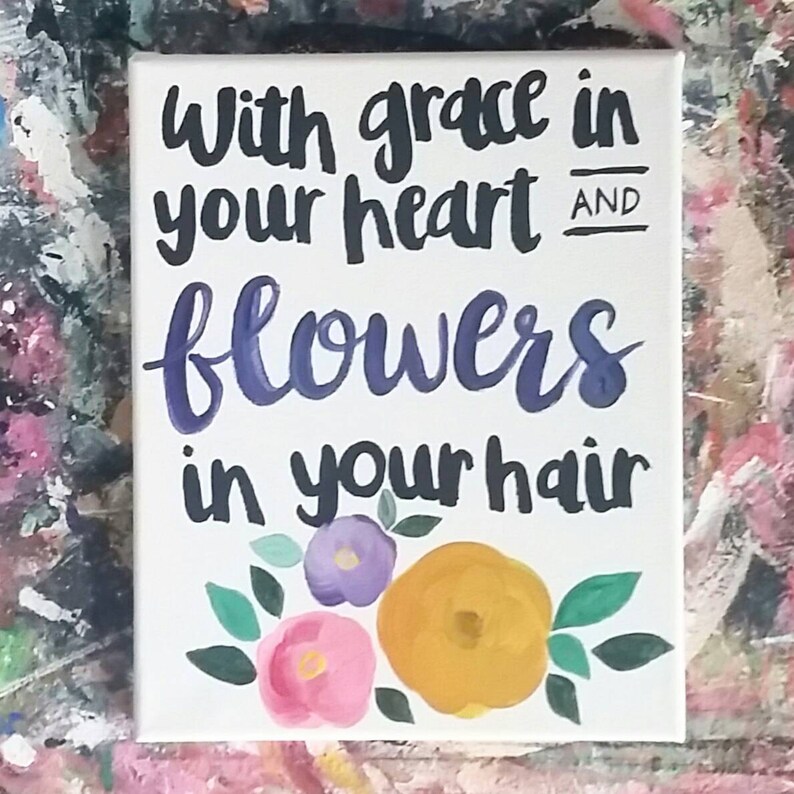 With grace in
your heart AND
flowers
in your hair